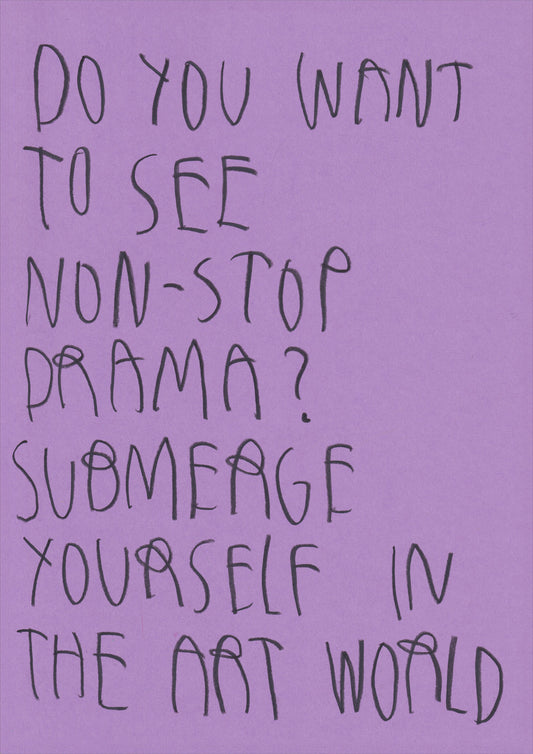 DO YOU WANT
TO SEE
NON-STOP
DRAMA?
SUBMERGE
YOURSELF IN
THE ART WORLD